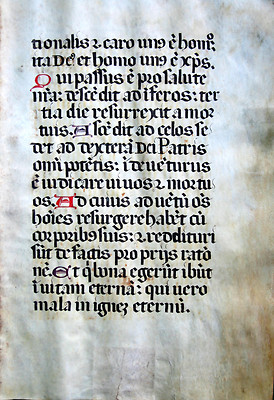 tionalis ⁊ caro unꝰ ē homo:
ita Deꝰ et homo unꝰ ē xp̄s.
Qui passus ē pro salute
nr̄a: descēdit ad īferos: ter
tia die resurrexit a mor
tuis. Ascēdit ad celos se
det ad dexterā Dei Patris
om̄i potētis: īde ueturus
ē iudicare uiuos ⁊ mortu
os. Ad cuius aduētū oēs
hoīes resurgere habēt cū
corporibꝰ suis: ⁊ reddituri
sūt de factis pro prijs ratō
nē. Et q̄ bona egerūt ibūt
ī uitam eternā: qui uero
mala in ignez eternū.